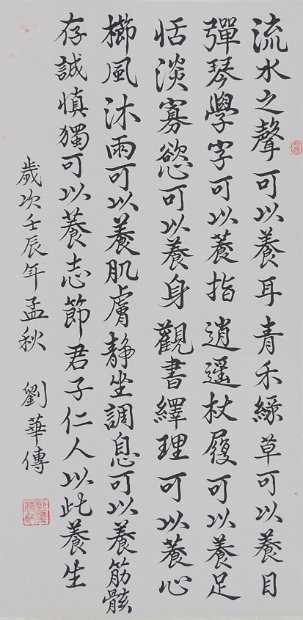 流水之聲可以養耳青禾綠草可以養目
彈琴學字可以養指逍遙杖履可以養足
恬淡寡慾可以養身觀書繹理可以養心
櫛風沐雨可以養肌膚靜坐調息可以養筋骸
存誠慎獨可以養志節君子仁人以此養生
歲次壬辰年孟秋 劉華傳